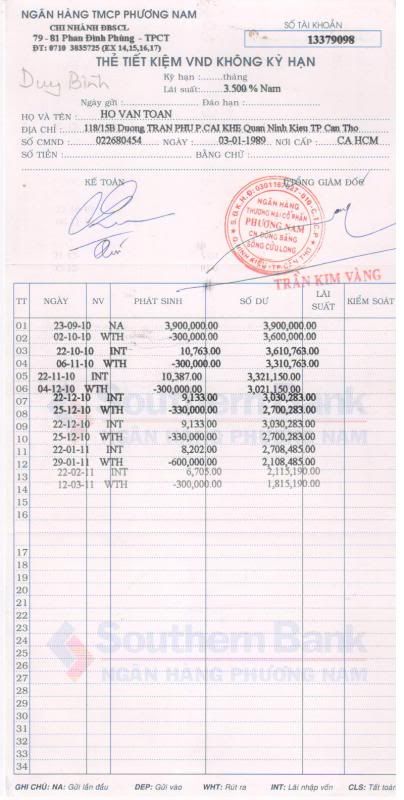 NGÂN HÀNG TMCP PHƯƠNG NAM
CHI NHÁNH ĐBSCL
79 - 81 Phan Đình Phùng - TPCT
ĐT: 0710 3835725 (EX 14,15,16,17)
SỐ TÀI KHOẢN
13379098
THẺ TIẾT KIỆM VND KHÔNG KỲ HẠN
Duy Bình
Kỳ hạn :........tháng
Lãi suất:....3.500 % Năm
Ngày gửi : Đáo hạn :
HỌ VÀ TÊN : HO VAN TOAN
ĐỊA CHỈ : 118/15B Duong TRAN PHU,P.CAI KHE Quan Ninh Kieu TP Can Tho
SỐ CMND : 022680454 NGÀY : 03-01-1989 NƠI CẤP : CA HCM
SỐ TIỀN : BẰNG CHỮ :
KẾ TOÁN TỔNG GIÁM ĐỐC
NGÂN HÀNG
THƯƠNG MẠI CỔ PHẦN
PHƯƠNG NAM
CN ĐỒNG BẰNG
SÔNG CỬU LONG
TRẦN KIM VÀNG
TT NGÀY NV PHÁT SINH SỐ DƯ LÃI SUẤT KIỂM SOÁT
01 23-09-10 NA 3,900,000.00 3,900,000.00
02 02-10-10 WTH -300,000.00 3,600,000.00
03 22-10-10 INT 10,763.00 3,610,763.00
04 06-11-10 WTH -300,000.00 3,310,763.00
05 22-11-10 INT 10,387.00 3,321,150.00
06 04-12-10 WTH -300,000.00 3,021,150.00
07 22-12-10 INT 9,133.00 3,030,283.00
08 25-12-10 WTH -330,000.00 2,700,283.00
09 22-12-10 INT 9,133.00 3,030,283.00
10 25-12-10 WTH -330,000.00 2,700,283.00
11 22-01-11 INT 8,202.00 2,708,485.00
12 29-01-11 WTH -600,000.00 2,108,485.00
13 22-02-11 INT 6,705.00 2,115,190.00
14 12-03-11 WTH -300,000.00 1,815,190.00
15
16
17
18
19
20
21
22
23
24
25
26
27
28
29
30
31
32
33
34
Southern Bank
NGÂN HÀNG PHƯƠNG NAM
Southern Bank
NGÂN HÀNG PHƯƠNG NAM
GHI CHÚ: NA: Gửi lần đầu DEP: Gửi vào WHT: Rút ra INT: Lãi nhập vốn CLS: Tất toán